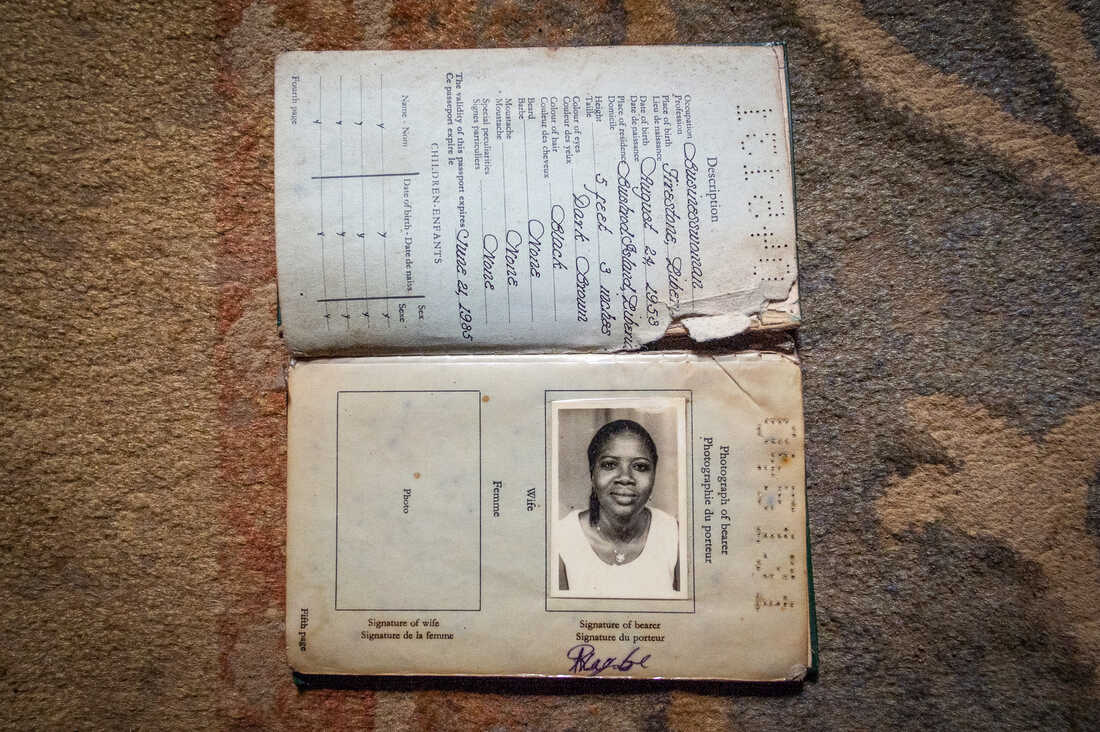 Description
Occupation Businesswoman
Profession
Place of birth Firestone, Liber
Lieu de naissance
Date of birth August 24 1953
Date de naissance
Place of residence Bushrod Island, Liberia
Domicile
Height 5 feet 3 inches
Taille
Colour of eyes Dark Brown
Couleur des yeux
Colour of hair Black
Couleur des cheveux
Beard None
Barbe
Moustache None
Moustache
Special peculiarities None
Signes particuliers
The validity of this passport expires June 21, 1985
Ce passeport expire le
CHILDREN-ENFANTS
Name - Nom Date of birth - Date de naiss Sex
Sexe
Fourth page
Photograph of bearer
Photographie du porteur
Signature of bearer
Signature du porteur
Wife
Femme
Photo
Signature of wife
Signature de la femme
Fifth page